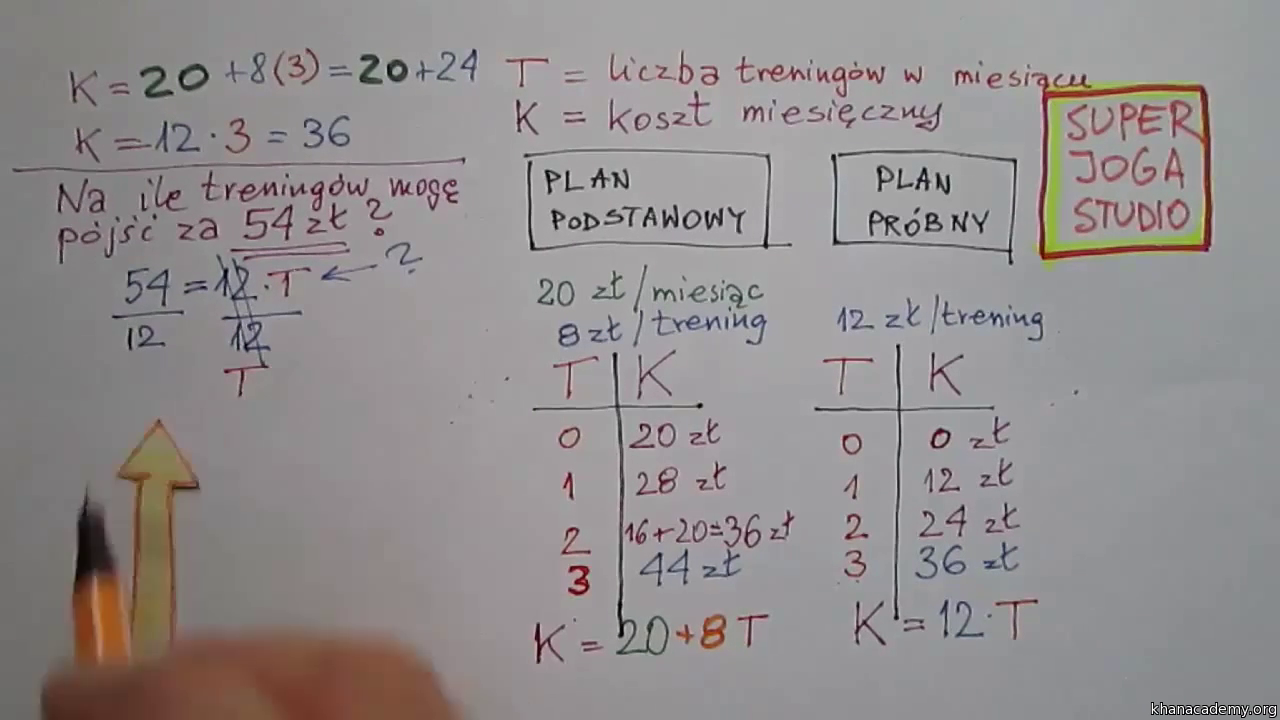 K = 20 + 8(3) = 20 + 24
K = 12 · 3 = 36
Na ile treningów mogę
pójść za 54 zł ?
54 = 12 · T ← ?
12 12
T
T = liczba treningów w miesiącu
K = koszt miesięczny
SUPER
JOGA
STUDIO
PLAN
PODSTAWOWY
20 zł/miesiąc
8 zł/trening
T K
0 20 zł
1 28 zł
2 16+20=36 zł
3 44 zł
K = 20 + 8 T
PLAN
PRÓBNY
12 zł/trening
T K
0 0 zł
1 12 zł
2 24 zł
3 36 zł
K = 12 · T
khanacademy.org